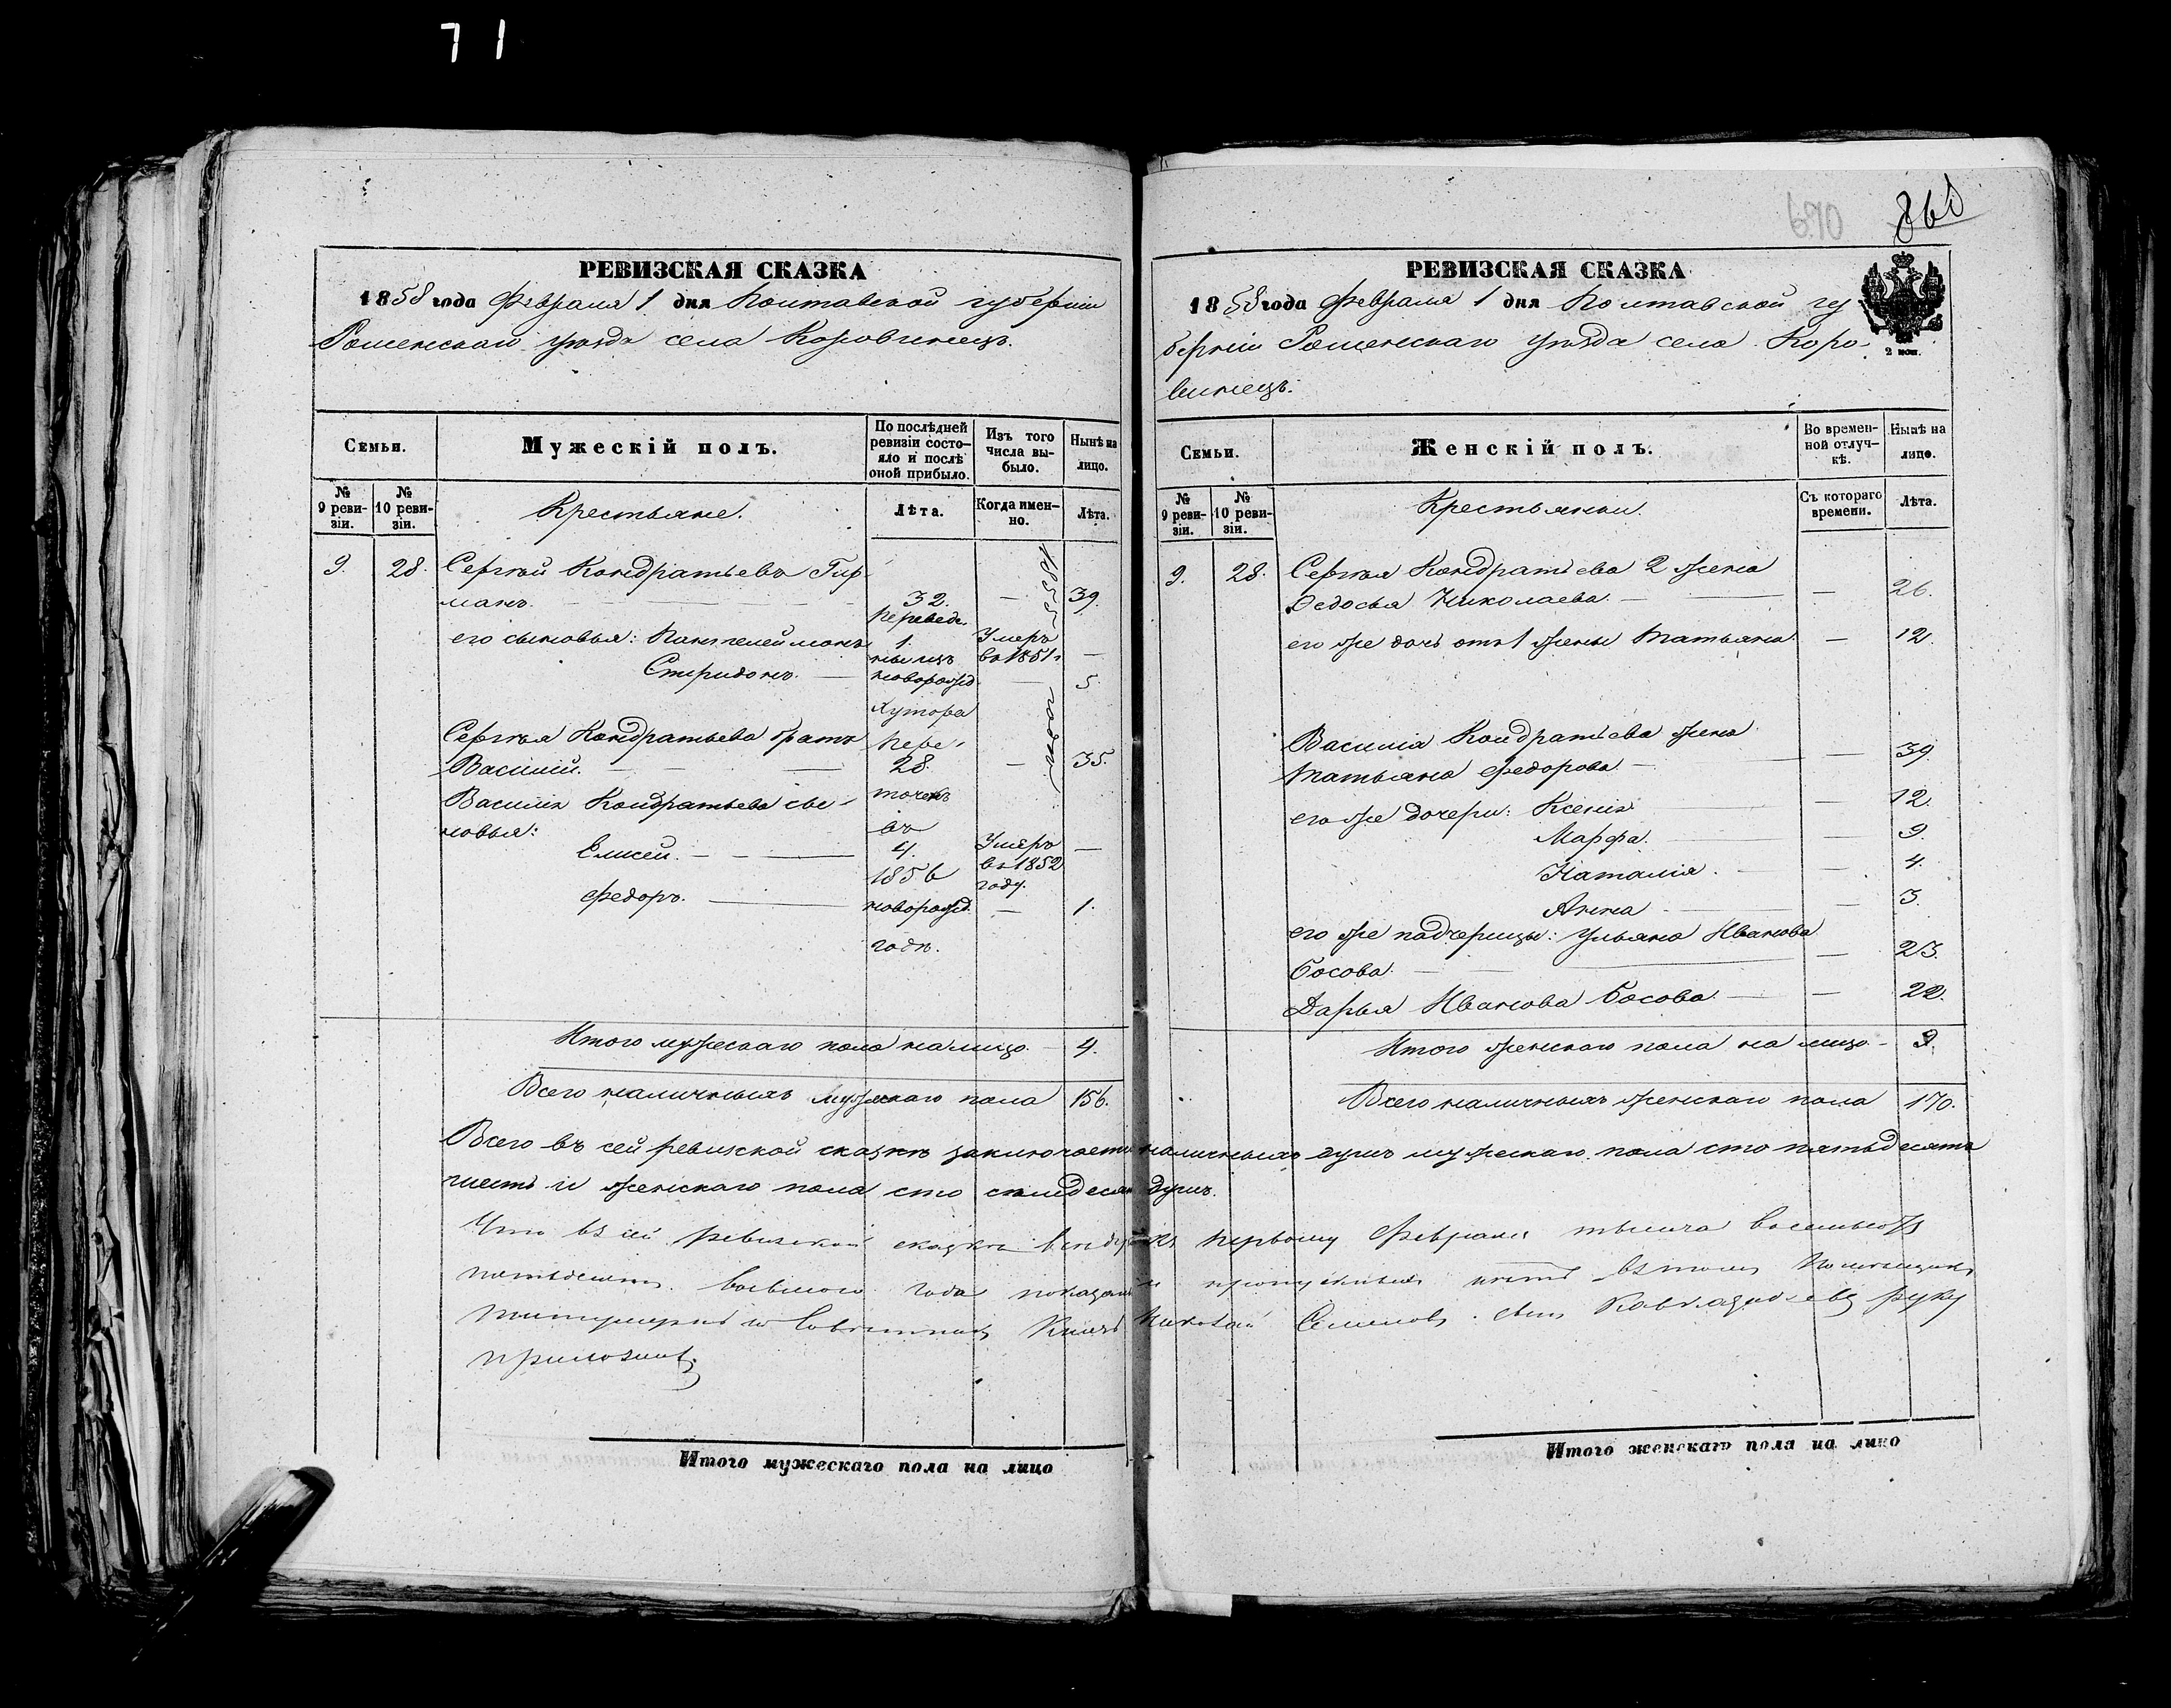 71
670
860
РЕВИЗСКАЯ СКАЗКА
1858 года Февраля 1 дня Полтавской губернии
Роменскаго уѣзда села Коровинецъ.
Семьи.
Мужескій полъ.
По послѣдней ревизіи состояло и послѣ оной прибыло.
Изъ того числа выбыло.
Нынѣ на лицо.
№ 9 ревизіи.
№ 10 ревизіи.
Крестьяне.
Лѣта.
Когда именно.
Лѣта.
9. 28. Сергѣй Кондратьевъ Гирманъ. — 32. — 39.
его сыновья: Пантелеймонъ 1. Умеръ въ 1851 г —
Спиридонъ. — новорожд — 5.
Сергѣя Кондратьева братъ
Василій. — 28. — 35.
Василія Кондратьева сыновья:
Елисей. — 4. Умеръ въ 1852 году. —
Федоръ. — новорожд. — 1.
Переведены изъ хутора въ 1856 годѣ.
Итого мужескаго пола на лицо. — 4.
Всего наличныхъ мужескаго пола 156.
РЕВИЗСКАЯ СКАЗКА
1858 года Февраля 1 дня Полтавской гу
берніи Роменскаго уѣзда села Коро-
винецъ.
2 коп.
Семьи.
Женскій полъ.
Во временной отлучкѣ.
Нынѣ на лицо.
№ 9 ревизіи.
№ 10 ревизіи.
Крестьянки.
Съ котораго времени.
Лѣта.
9. 28. Сергѣя Кондратьева 2 жена
Федосья Николаева. — — 26.
его же дочь отъ 1 жены Татьяна. — 12.
Василія Кондратьева жена
Татьяна Федорова — — 39.
его же дочери: Ксенія — 12.
Марфа. — 9.
Наталія. — 4.
Анна — 3.
его же падчерицы: Ульяна Иванова
Босова. — — 23.
Дарья Иванова Босова. — — 22.
Итого женскаго пола на лицо — 9.
Всего наличныхъ женскаго пола 170.
Всего въ сей ревизской сказкѣ заключается наличныхъ душъ мужескаго пола сто пятьдесятъ
шесть и женскаго пола сто семьдесятъ душъ.
Что въ сей ревизской сказкѣ всѣ души къ первому Февраля тысяча восемьсотъ
пятьдесятъ восьмого года показаны и пропущенныхъ нѣтъ въ томъ помещикъ
Титулярный Совѣтникъ Князь Николай Семеновъ сынъ руку
приложилъ.
Итого мужескаго пола на лицо
Итого женскаго пола на лицо